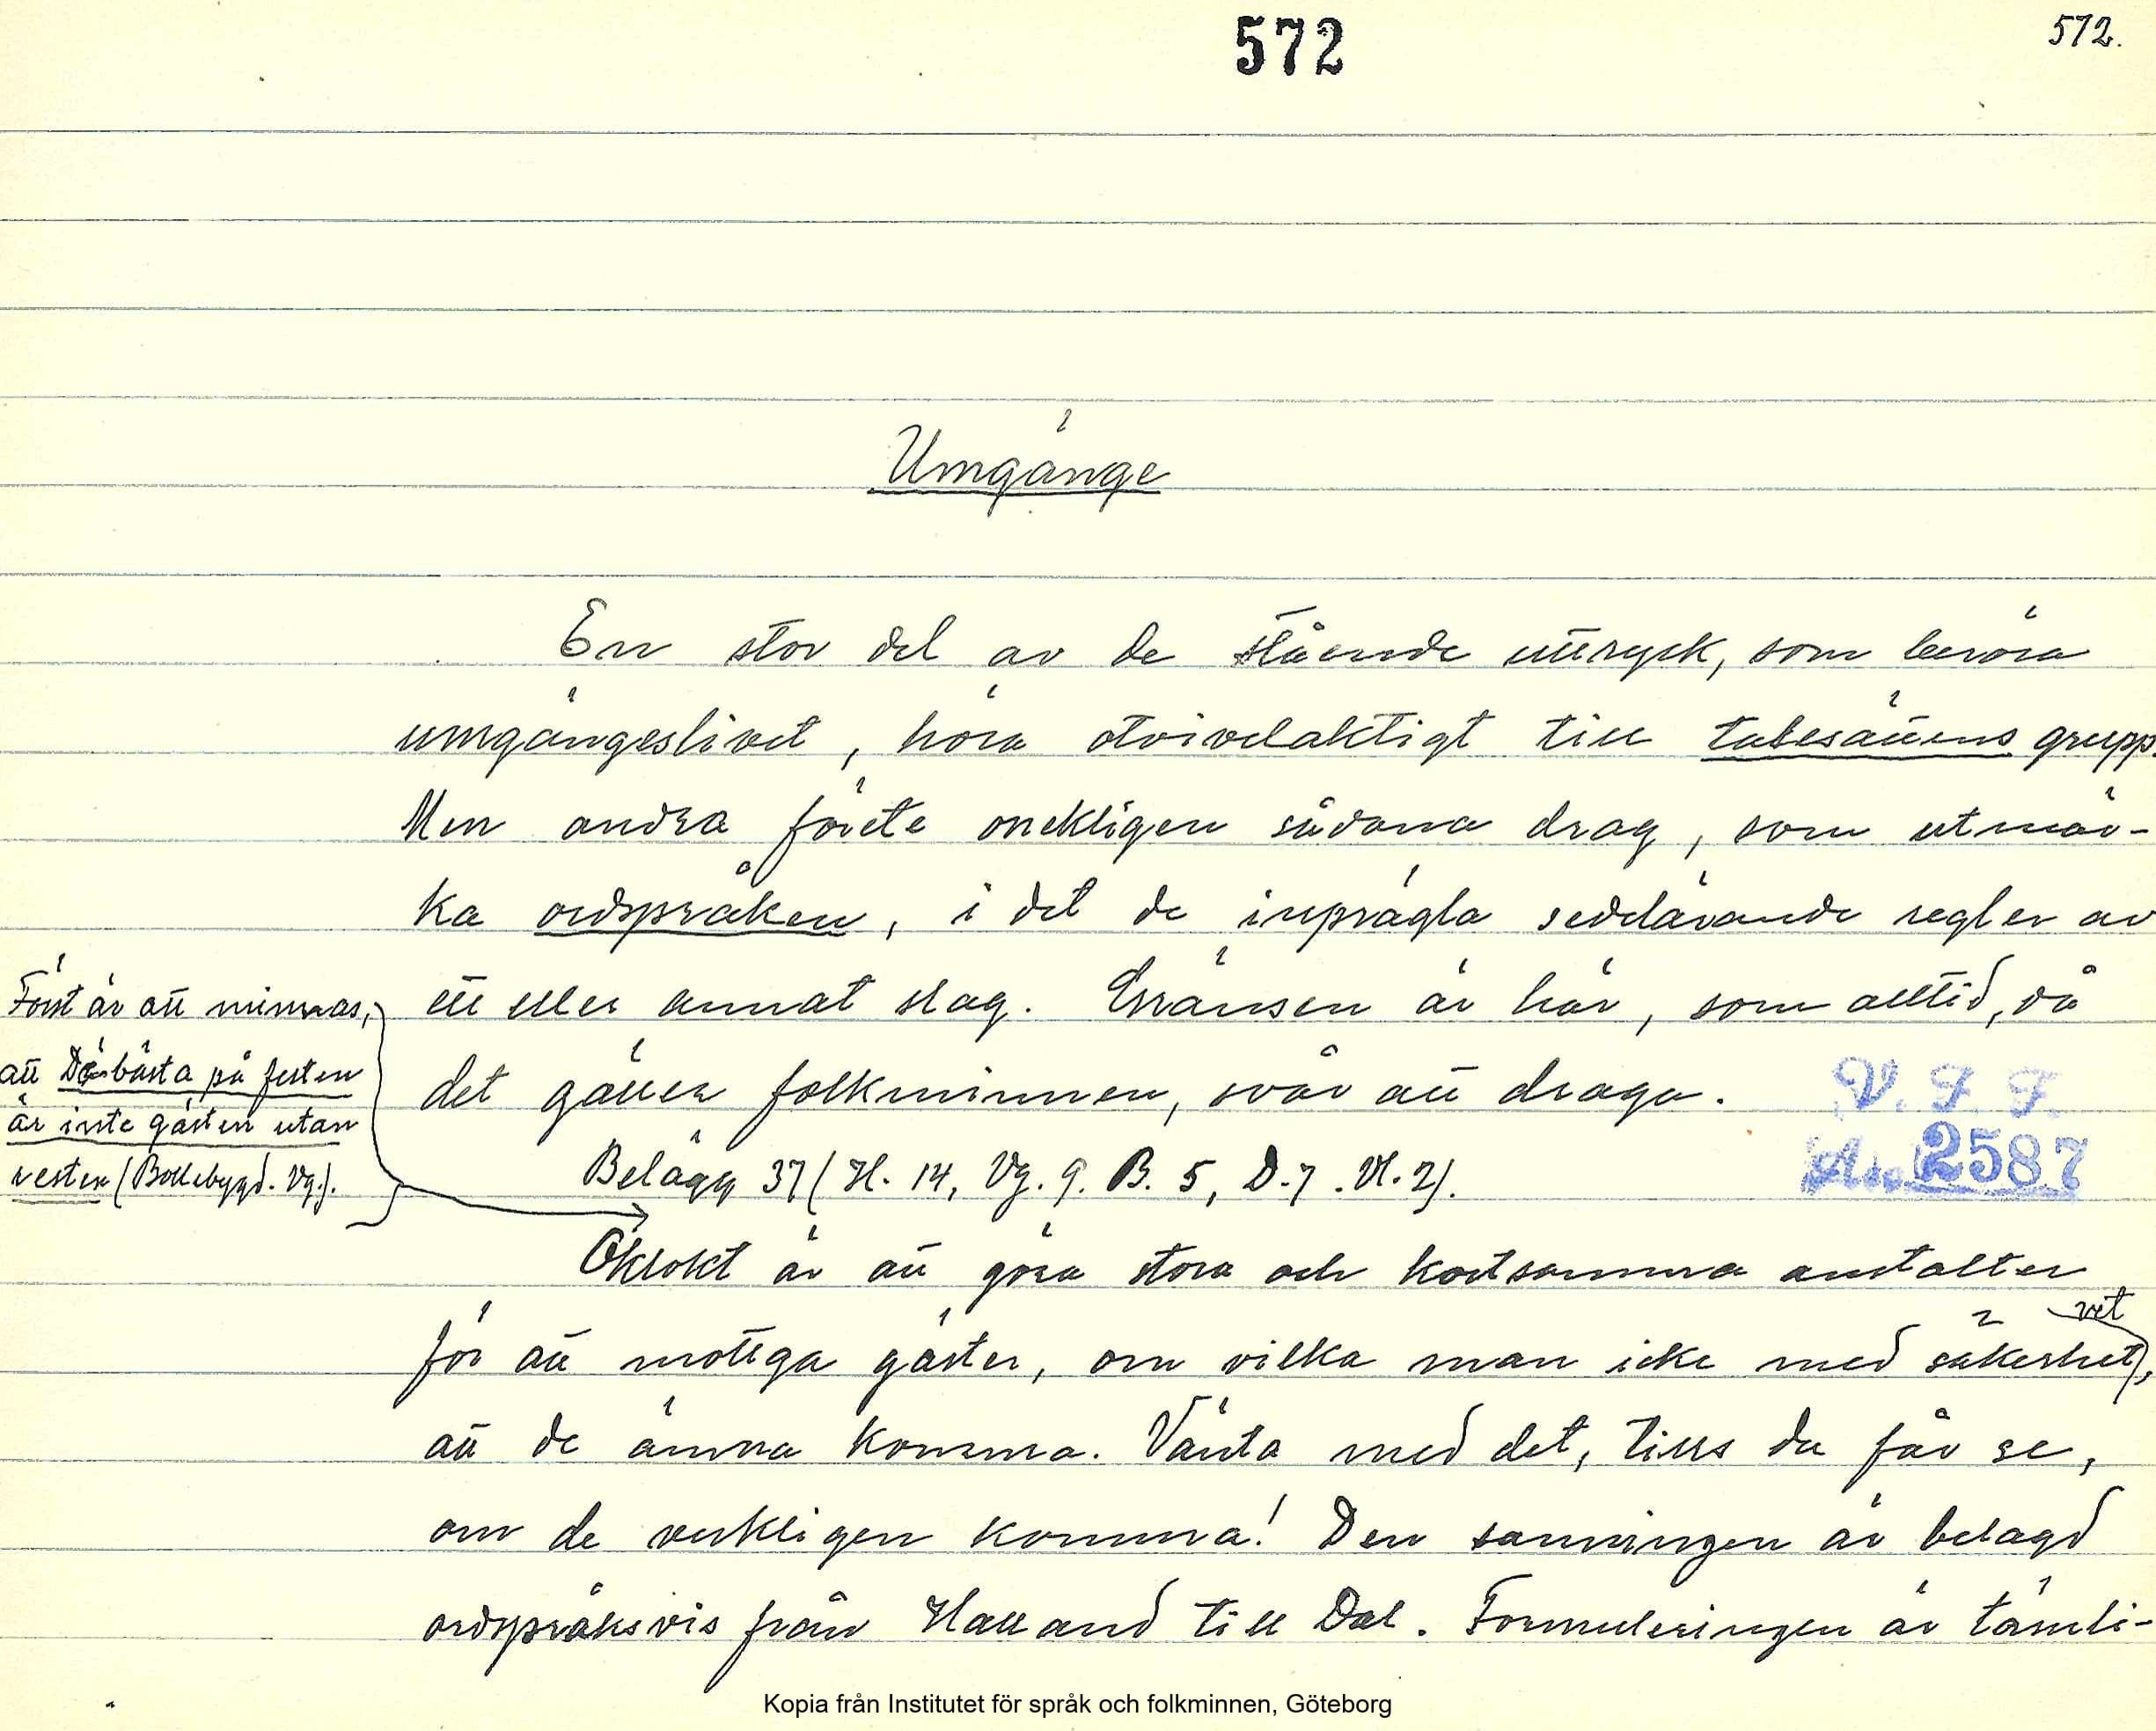 572
572.
Umgänge
En stor del av de stående uttryck, som beröra
umgängeslivet, höra otvivelaktigt till talesättens grupp.
Men andra förete onekligen sådana drag, som utmär-
ka ordspråken, i det de inprägla sedelärande regler av
ett eller annat slag. Gränsen är här, som alltid, då
det gäller folkminnen, svår att draga.
V. F. F.
Acc. 2587
Belägg 37 (H. 14, Vg. 9. B. 5, D. 7. Vl. 2).
Först är att minnas,
att Dä bästa på festen
är inte gästen utan
resten (Bollebygd. Vg.).
Oklokt är att göra stora och kostsamma anstalter
för att mottaga gäster, om vilka man icke med säkerhet vet,
att de ämna komma. Vänta med det, tills du får se,
om de verkligen komma! Den sanningen är belagd
ordspråksvis från Halland till Dal. Formuleringen är tämli-
Kopia från Institutet för språk och folkminnen, Göteborg